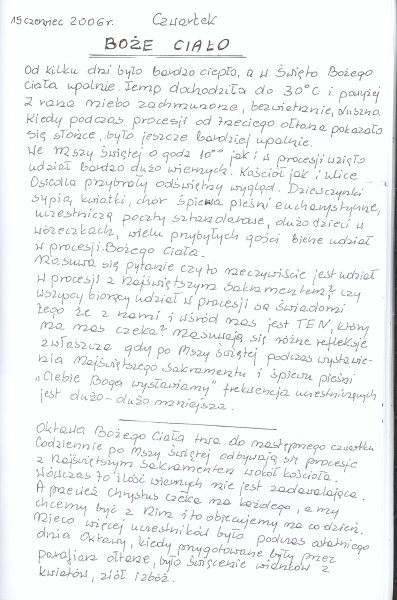 15 czerwiec 2006 r. Czwartek
BOŻE CIAŁO
Od kilku dni było bardzo ciepło, a w Święto Bożego
Ciała upalnie. Temp dochodziła do 30°C i powyżej
Z rana niebo zachmurzone, bezwietrznie, duszno.
Kiedy podczas procesji od trzeciego ołtarza pokazało
się słońce, było jeszcze bardziej upalnie.
We Mszy Świętej o godz 10°° jak i w procesji wzięło
udział bardzo dużo wiernych. Kościół jak i ulice
Osiedla przybrały odświętny wygląd. Dziewczynki
sypią kwiatki, chór śpiewa pieśni eucharystyczne,
uczestniczą poczty sztandarowe, dużo dzieci w
wózeczkach, wielu przybyłych gości bierze udział
w procesji Bożego Ciała.
Nasuwa się pytanie czy to rzeczywiście jest udział
w procesji z Najświętszym Sakramentem? czy
wszyscy biorący udział w procesji są świadomi
tego że z nami i wśród nas jest TEN, który
na nas czeka? Nasuwają się różne refleksje
zwłaszcza gdy po Mszy Świętej podczas wystawie-
nia Najświętszego Sakramentu i śpiewu pieśni
„Ciebie Boga wysławiamy" frekwencja uczestniczących
jest dużo - dużo mniejsza.
Oktawa Bożego Ciała trwa do następnego czwartku
Codziennie po Mszy Świętej odbywają się procesje
z Najświętszym Sakramentem wokół kościoła.
Wówczas to ilość wiernych nie jest zadawalająca.
A przecież Chrystus czeka na każdego, a my
chcemy być z Nim i to obiecujemy na co dzień.
Nieco więcej uczestników było podczas ostatniego
dnia Oktawy, kiedy przygotowane były przez
parafian ołtarze, było święcenie wianków z
kwiatów, ziół i zbóż.